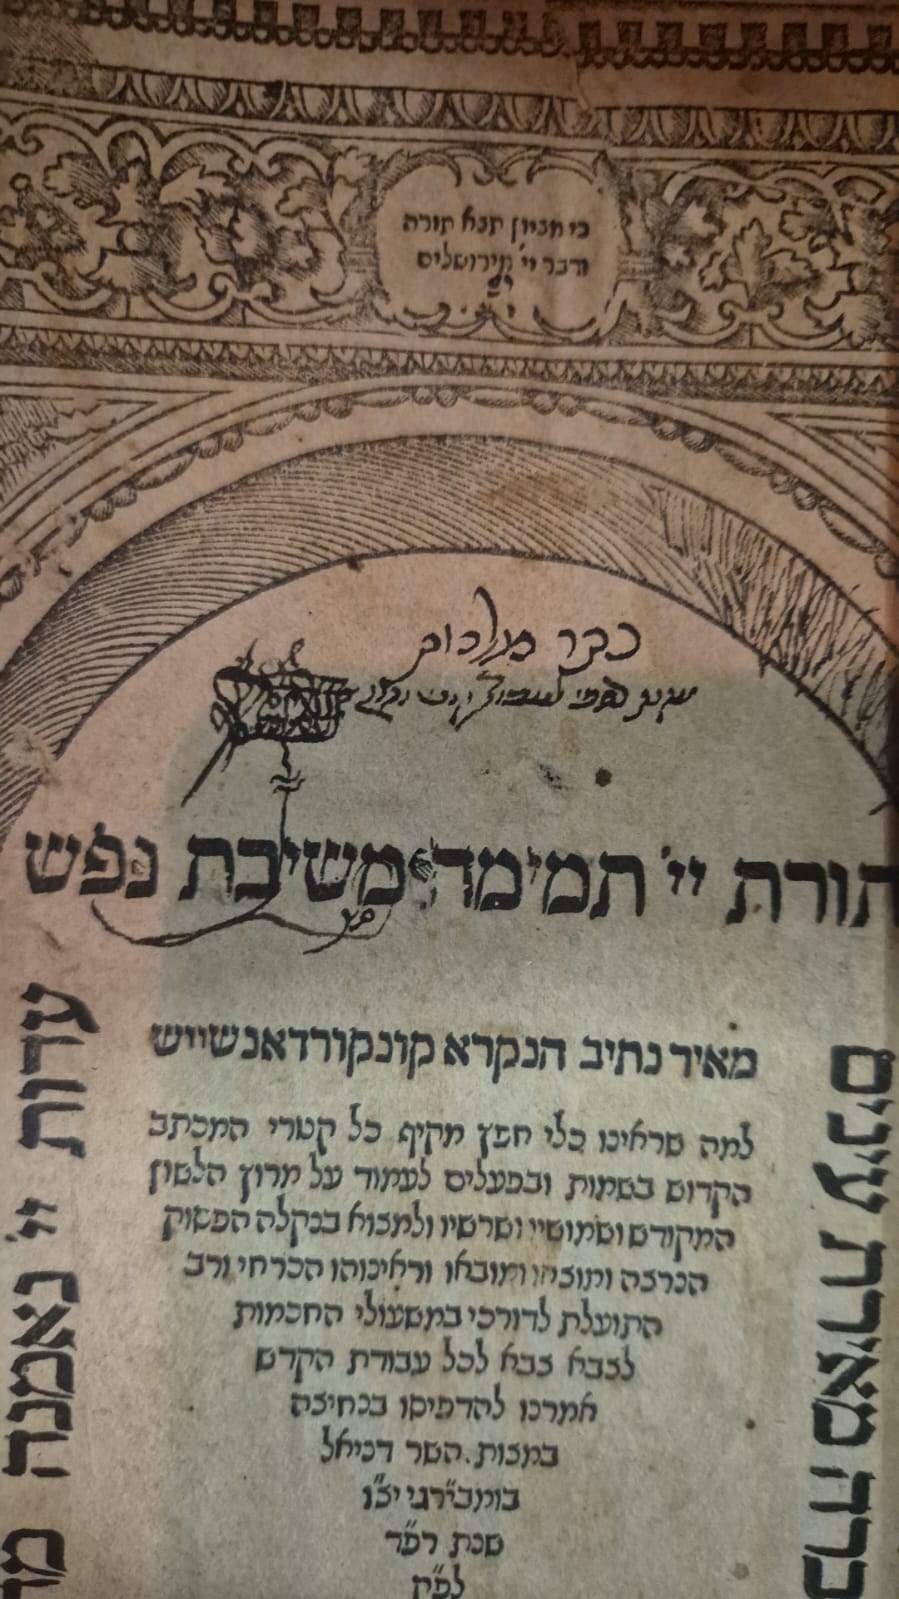 כי מציון תצא תורה
ודבר יי' מירושלים
תורת יי' תמימה משיבת נפש
עדות יי' נאמנה
מאיר נתיב הנקרא קונקורדאנשייש
למה שראינו כלי חפץ מקיף כל קטרי המכתב
הקדוש בשמות ובפעלים לעמוד על מרוץ הלשון
המקודש ושמושיו ושרשיו ולמצוא בנקלה הפסוק
הנרצה ומוצאו ומובאו וראינוהו הכרחי ורב
התועלת לדורכי במשעולי החכמות
לצבא צבא לכל עבודת הקדש
אמרנו להדפיסו בנחיצה
במצות השר דניאל
בומבירגי יצ"ו
שנת רפ"ד
לפ"ק
ברה מאירת עינים